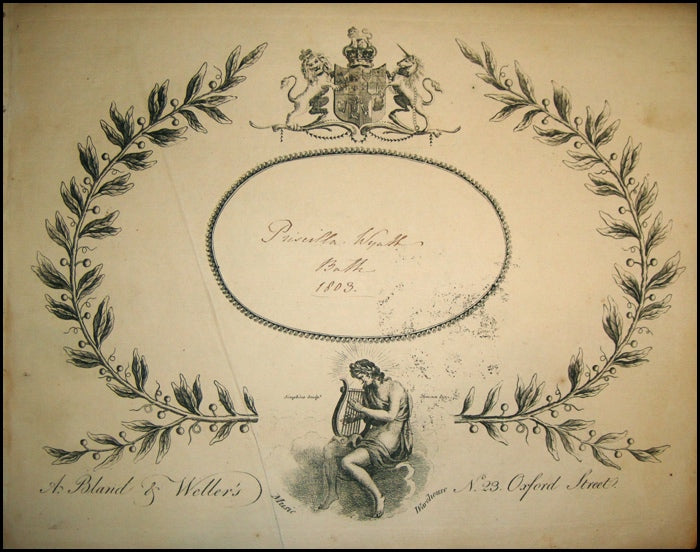 Priscilla Wyatt
Bath
1803.
Simpkins Sculpt.
A. Bland & Weller's Music Warehouse No. 23. Oxford Street.
3